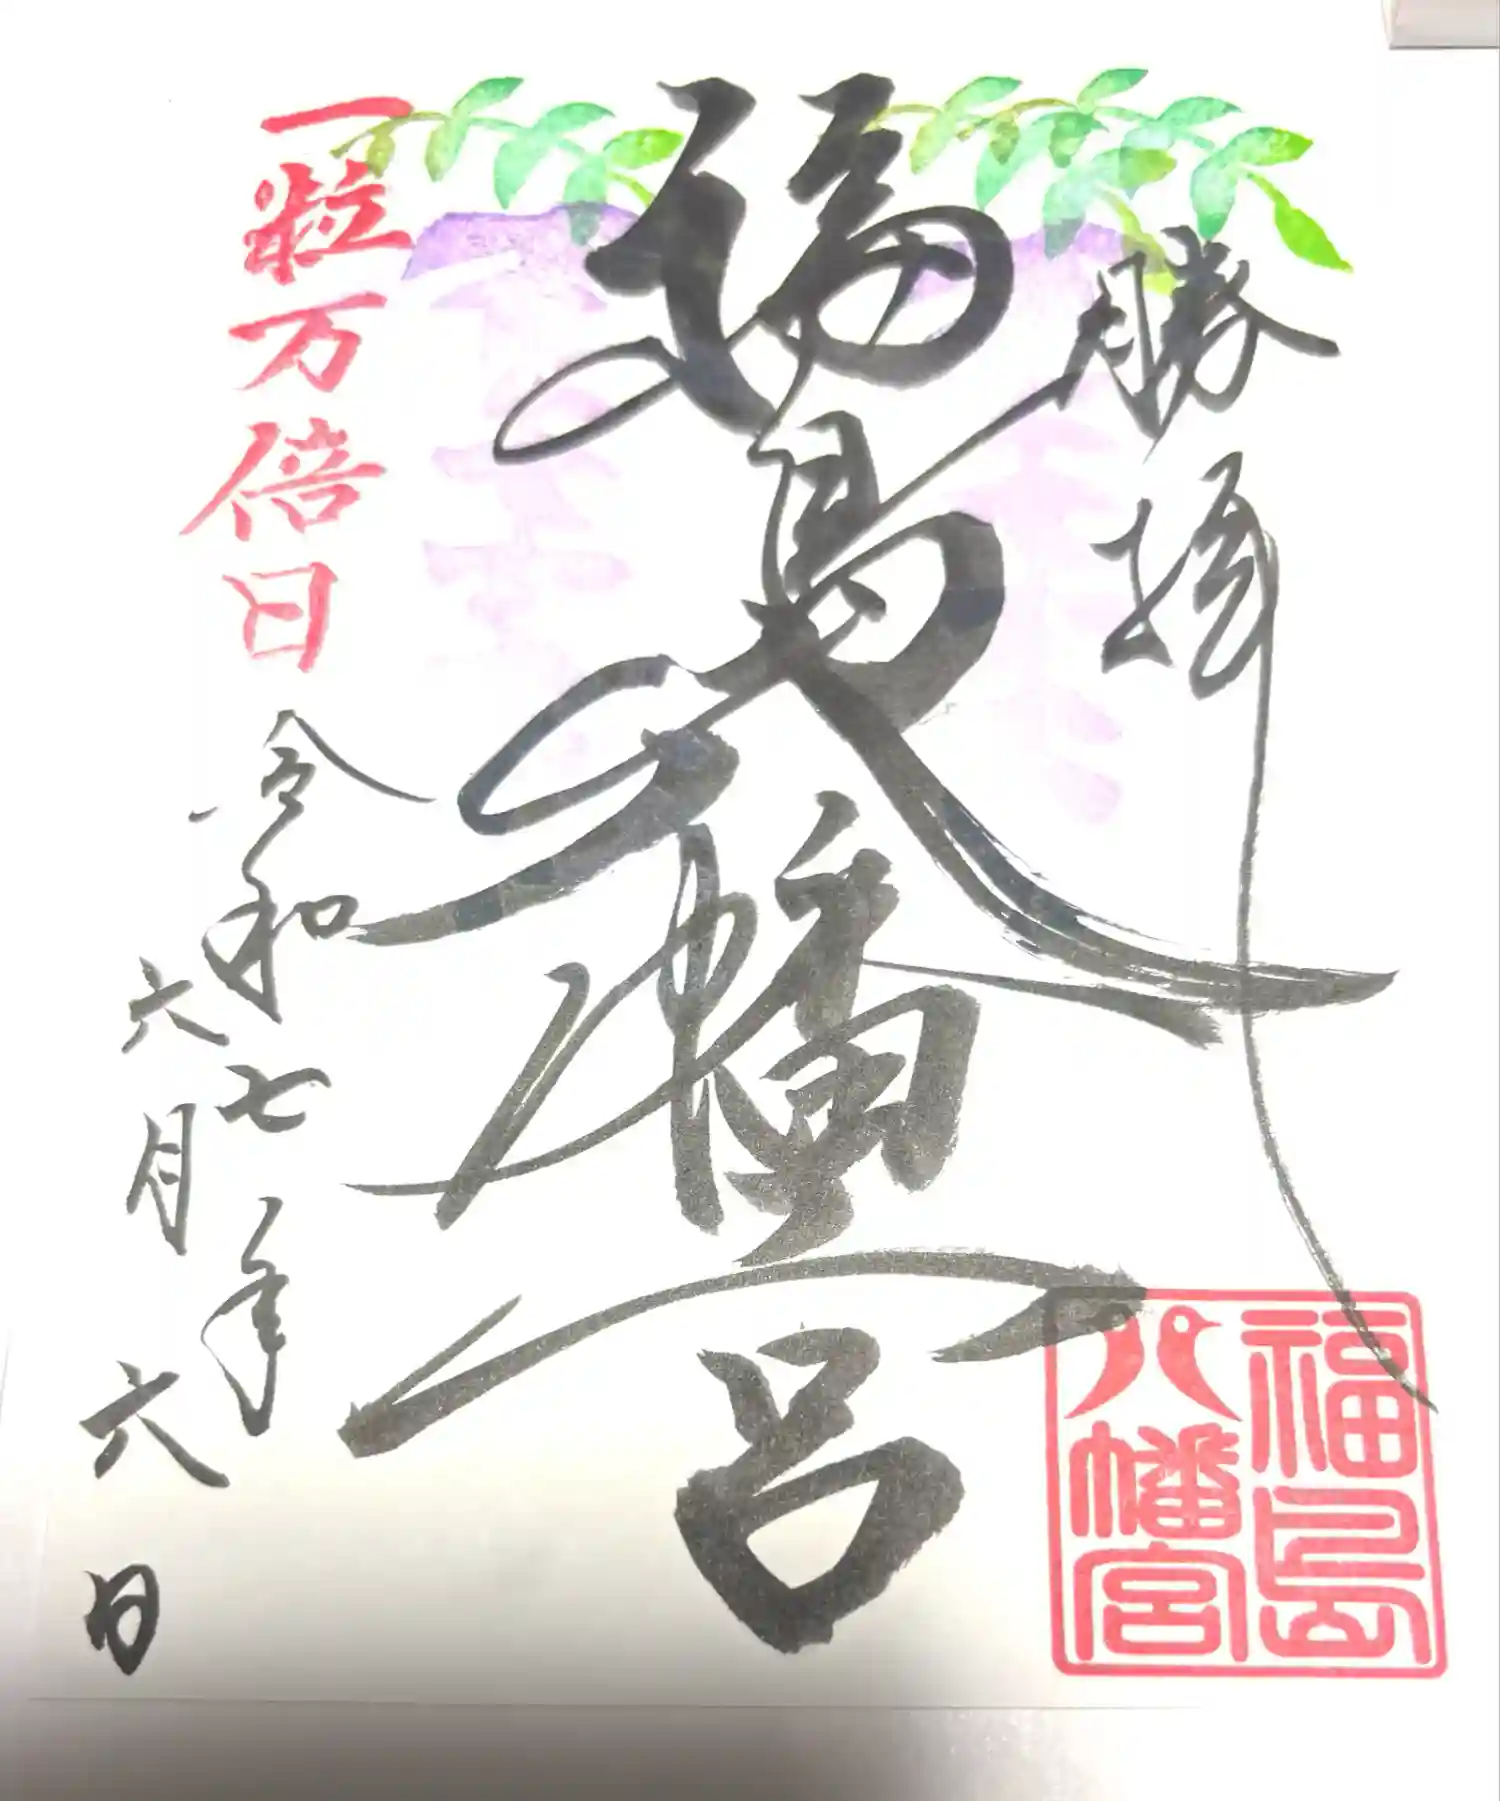 勝拝
福島八幡宮
一粒万倍日
令和七年
六月六日
福島
八幡宮